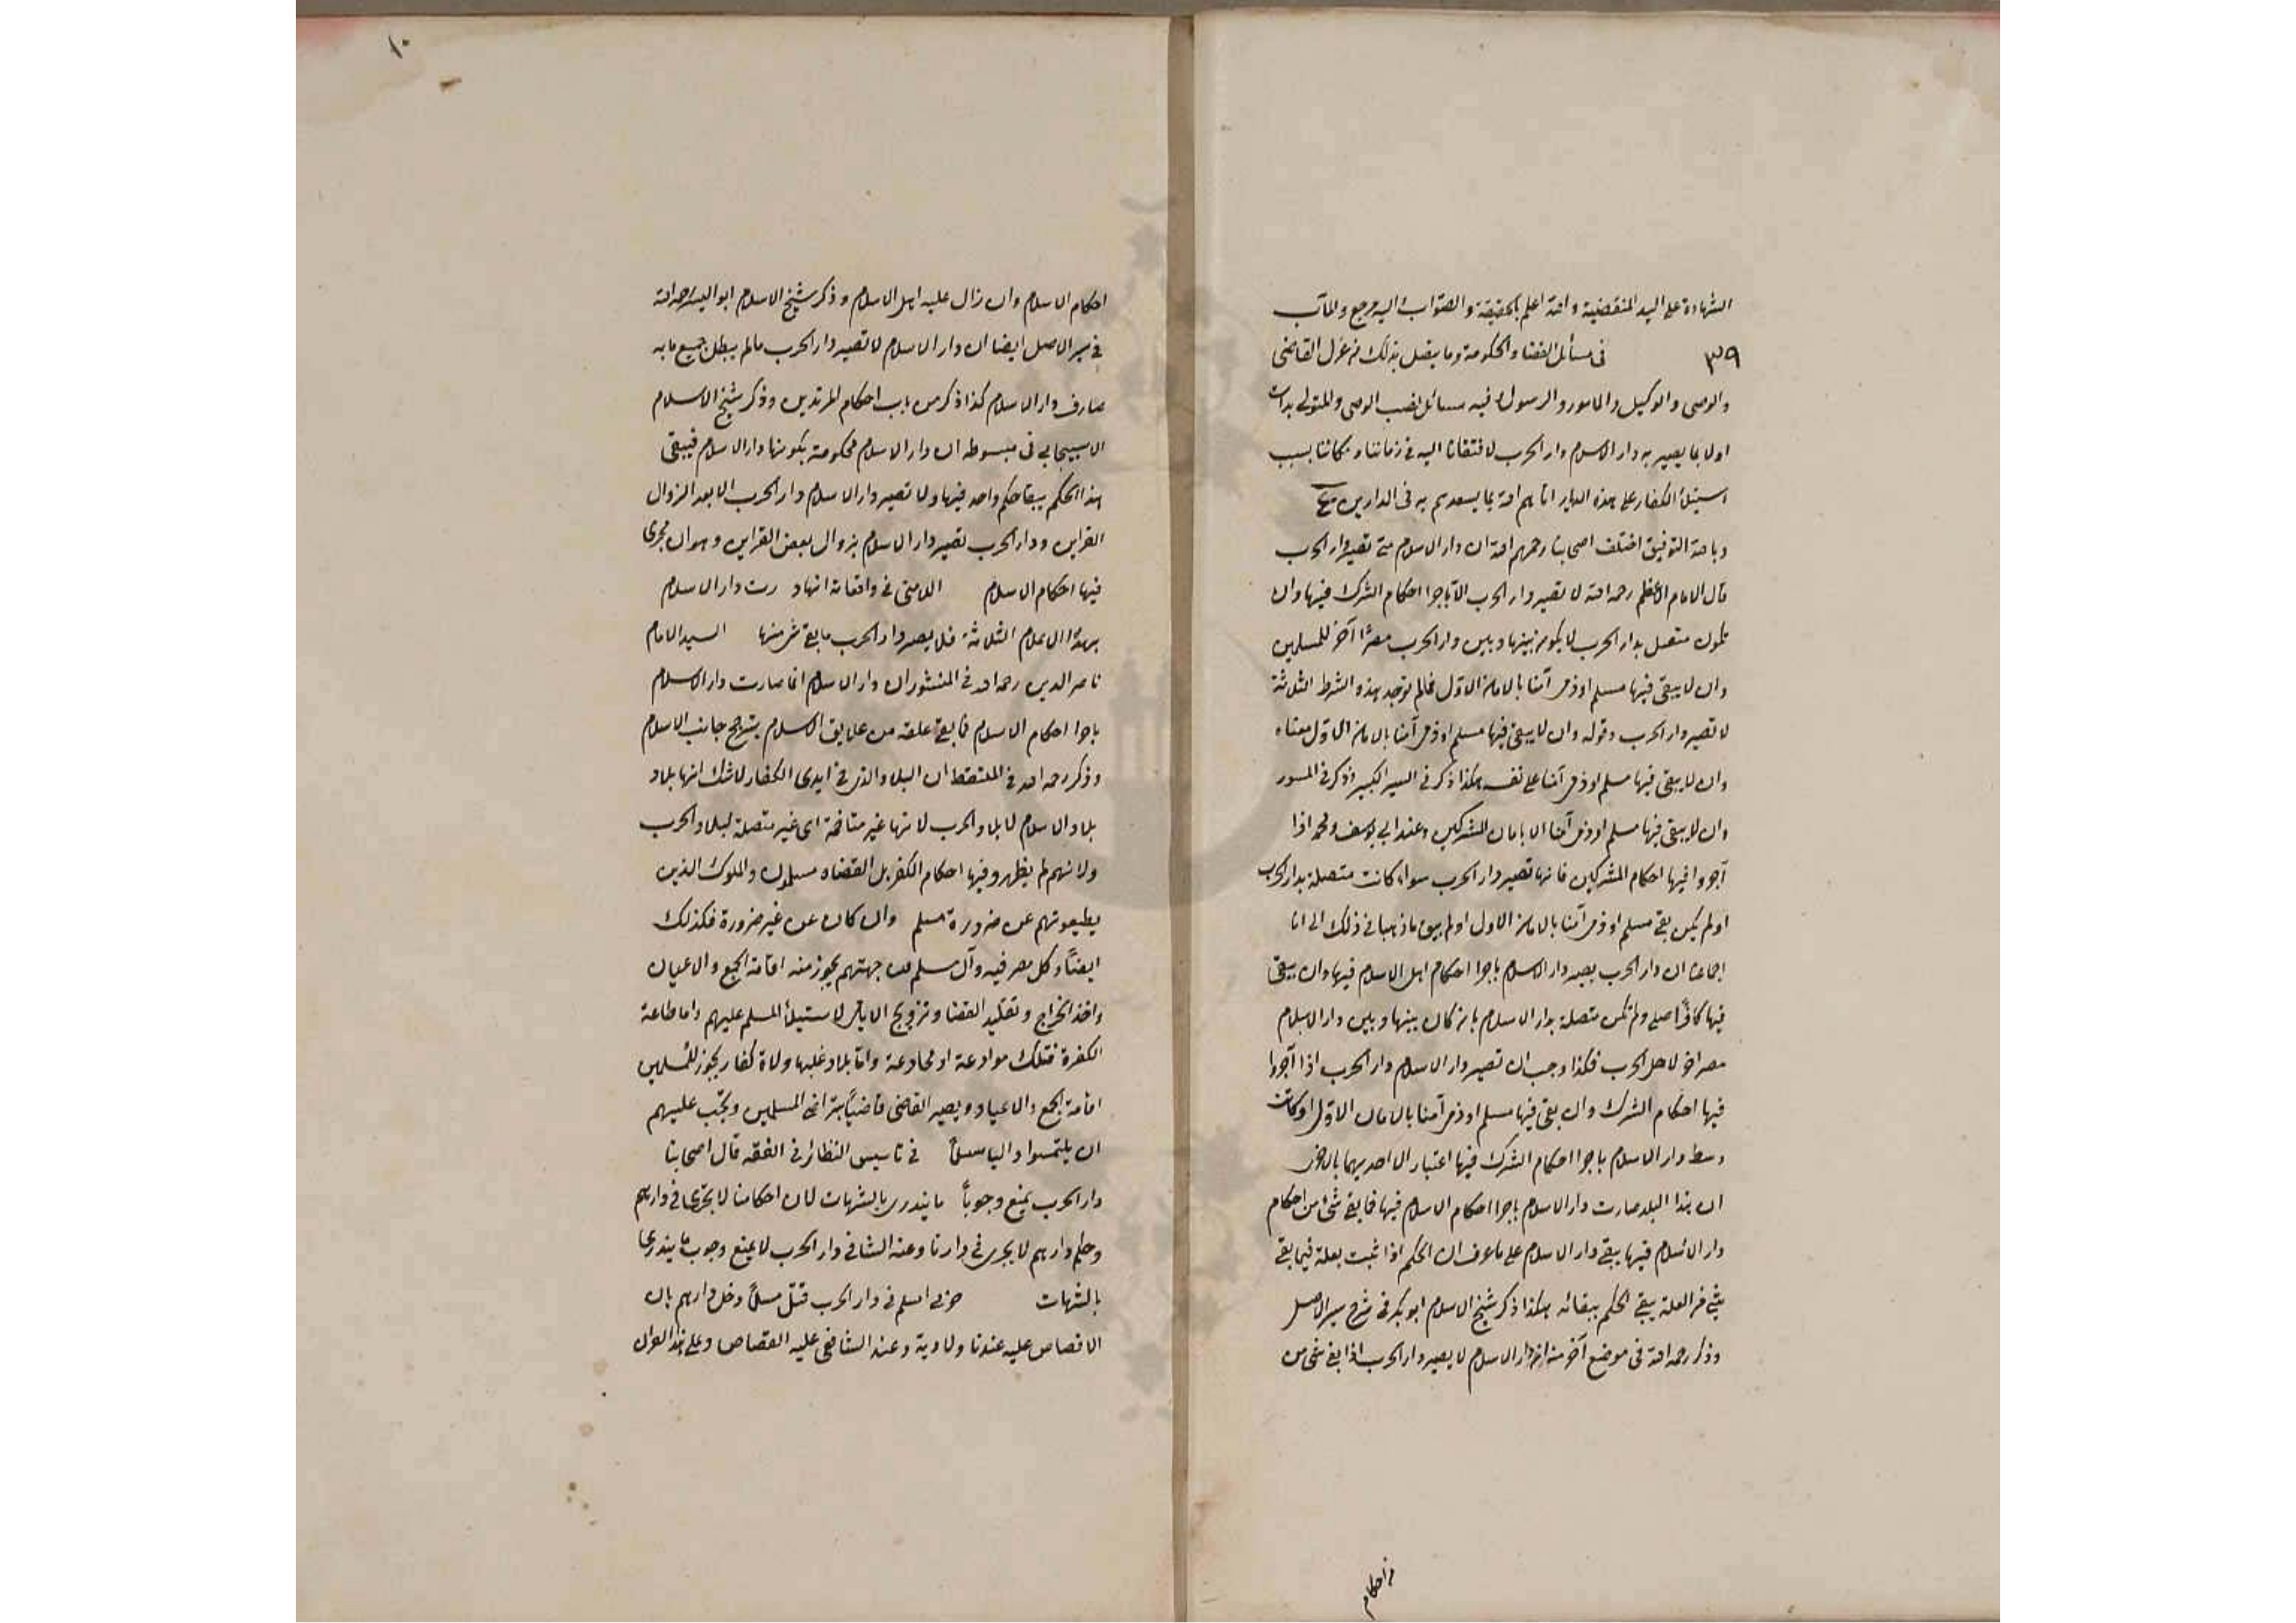 الشهادة على اليد المنقضية والله اعلم بالحقيقة والصواب اليه مرجع والمآب
٣٩ فى مسائل القضا والحكومة وما يتصل بذلك من عزل القاضى
والوصى والوكيل والمامور والرسول وفيه مسائل نصب الوصى والمتولى بدات
اولا بما يصير به دار الاسلام دار الحرب لافتقارنا اليه فى زماننا ومكاننا بسبب
استيلأ الكفار على هذه الديار اتاهم الله بما يسعدهم به فى الدارين
وبالله التوفيق اختلف اصحابنا رحمهم الله ان دار الاسلام متى تصير دار الحرب
قال الامام الاعظم رحمه الله لا تصير دار الحرب الا باجرا احكام الشرك فيها وان
تكون متصل بدار الحرب لا يكون بينها وبين دار الحرب مصرًا آخر للمسلمين
وان لا يبقى فيها مسلم او ذمى آمنا بالامان الاول فمالم توجد هذه الشرط الثلاثة
لا تصير دار الحرب وقوله وان لا يبقى فيها مسلم او ذمى آمنا بالامان الاول معناه
وان لا يبقى فيها مسلم او ذمى آمنا على نفسه هكذا ذكر فى السير الكبير وذكر فى
وان لا يبقى فيها مسلم او ذمى آمنا الا بامان المشركين وعند ابى يوسف ومحمد اذا
آجروا فيها احكام المشركين فانها تصير دار الحرب سواء كانت متصلة بدار الحرب
او لم يكن بقى مسلم او ذمى آمنا بالامان الاول او لم يبق ماذهبا فى ذلك الى انا
اجماعنا ان دار الحرب يصير دار الاسلام باجرا احكام اهل الاسلام فيها وان يبقى
فيها كافرًا اصلى ولم تكن متصلة بدار الاسلام بان كان بينها وبين دار الاسلام
مصر اخر لاهل الحرب فكذا وجب ان تصير دار الاسلام دار الحرب اذا آجروا
فيها احكام الشرك وان بقى فيها مسلم او ذمى آمنا بالامان الاول او كانت
وسط دار الاسلام باجرا احكام الشرك فيها اعتبار الاحديهما بالاخرى
ان هذا البلد صارت دار الاسلام باجرا احكام الاسلام فيها فما بقى شئ من احكام
دار الاسلام فيها يبقى دار الاسلام على ماعرف ان الحكم اذا ثبت بعلة فيما بقى
شئ من العلة يبقى الحكم ببقائه هكذا ذكر شيخ الاسلام ابو بكر فى شرح سير الاصل
وذكر رحمه الله فى موضع آخر منه ان دار الاسلام لا يصير دار الحرب اذا بقى شئ من
من احكام
١٠
احكام الاسلام وان زال عليه اهل الاسلام وذكر شيخ الاسلام ابو اليسر رحمه الله
فى سير الاصل ايضا ان دار الاسلام لا تصير دار الحرب مالم يبطل جميع مابه
صارف دار الاسلام كذا ذكر من باب احكام المرتدين وذكر شيخ الاسلام
الاسبيجابى فى مبسوطه ان دار الاسلام محكومة بكونها دار الاسلام فيبقى
هذا الحكم ببقا حكم واحد فيها ولا تصير دار الاسلام دار الحرب الا بعد الزوال
القراين ودار الحرب تصير دار الاسلام بزوال بعض القراين وهو ان تجرى
فيها احكام الاسلام اللامشى فى واقعاته انهاد رت دار الاسلام
بهذا الاعلام الثلاثة فلا يصير دار الحرب ما بقى شئ منها السيد الامام
ناصر الدين رحمه الله فى المنشور ان دار الاسلام انما صارت دار الاسلام
باجرا احكام الاسلام فما بقى علقه من علايق الاسلام يترجح جانب الاسلام
وذكر رحمه الله فى الملتقط ان البلاد الذى فى ايدى الكفار لا شك انها بلاد
بلاد الاسلام لا بلاد الحرب لانها غير متاخمة اى غير متصلة لبلاد الحرب
ولانهم لم يظهروا فيها احكام الكفر بل القضاه مسلمون والملوك الذين
يطيعونهم عن ضرورة مسلم وان كان عن غير ضرورة فكذلك
ايضًا وكل مصر فيه وآل مسلم من جهتهم يجوز منه اقامة الجمع والاعيان
واخذ الخراج وتقليد القضا وتزويج الايامى لاستيلأ المسلم عليهم واما طاعة
الكفرة فتلك موادعة او مخادعة واما بلاد غلبها ولاة كفار يجوز للمسلمين
اقامة الجمع والاعياد ويصير القاضى قاضيًا بتراضى المسلمين ويجب عليهم
ان يلتمسوا واليا مسلمًا فى تاسيس النظائر فى الفقه قال اصحابنا
دار الحرب يمنع وجوبًا ما يندرى بالشبهات لان احكامنا لا يجرى فى دارهم
وحكم دارهم لا يجرى فى دارنا وعند الشافى دار الحرب لا يمنع وجوب ما يندرى
بالشبهات حربى اسلم فى دار الحرب قتل مسلمًا دخل دارهم بان
لا قصاص عليه عندنا ولا دية وعند الشافعى عليه القصاص وعلى هذا